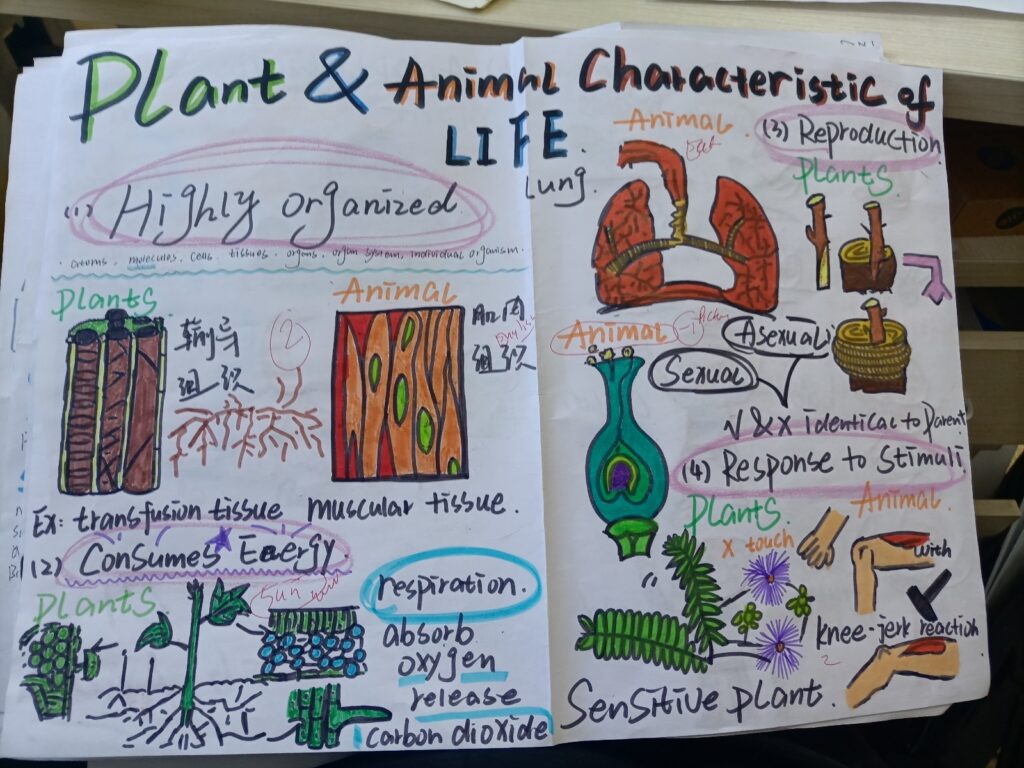 Plant & Animal Characteristic of
LIFE.
(1) Highly organized
· atoms. molecules. cells. tissues. organs. organ system. individual organism.
Plants
Animal
2
组织
肌肉
组织
Ex: transfusion tissue
muscular tissue.
(2) Consumes Energy
Plants
Sun
respiration.
absorb
oxygen
release
carbon dioxide
Lung.
Animal
Eat
(3) Reproduction
Plants
Animal
Asexual
Sexual
√ & X identical to parent
(4) Response to Stimuli
Plants
Animal
X touch
with
knee-jerk reaction
2
Sensitive plant.